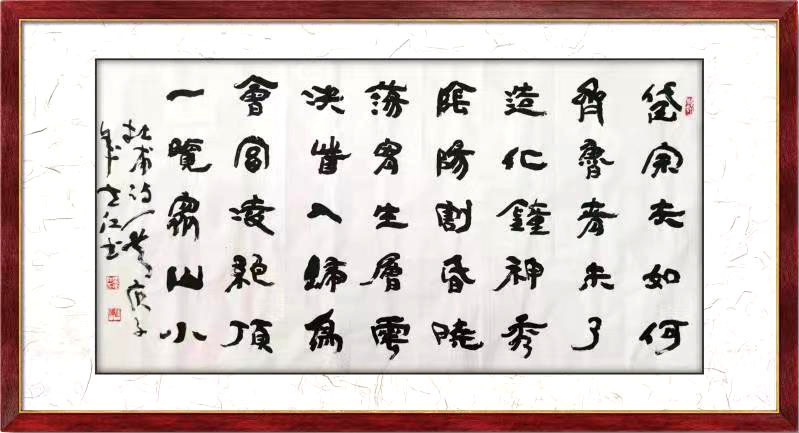 岱宗夫如何
齊魯青未了
造化鐘神秀
陰陽割昏曉
蕩胷生層雲
決眥入歸鳥
會當凌絕頂
一覽眾山小
杜甫詩一首庚子
年江書